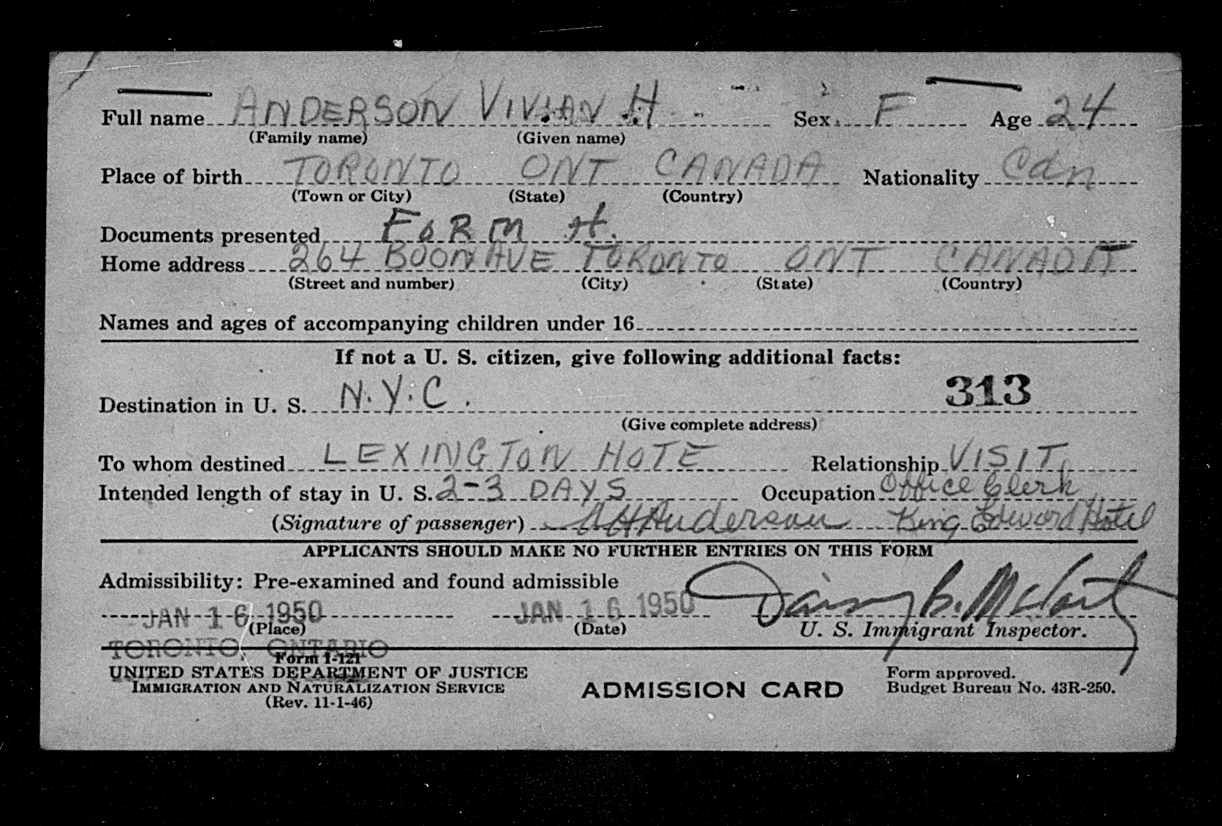 Full name ANDERSON VIVIAN H Sex F Age 24
(Family name) (Given name)
Place of birth TORONTO ONT CANADA Nationality Cdn
(Town or City) (State) (Country)
Documents presented FORM H.
Home address 264 BOON AVE TORONTO ONT CANADA
(Street and number) (City) (State) (Country)
Names and ages of accompanying children under 16
If not a U. S. citizen, give following additional facts:
313
Destination in U. S. N.Y.C.
(Give complete address)
To whom destined LEXINGTON HOTE Relationship VISIT
Intended length of stay in U. S. 2-3 DAYS Occupation Office Clerk
(Signature of passenger) VHAnderson King Edward Hotel
APPLICANTS SHOULD MAKE NO FURTHER ENTRIES ON THIS FORM
Admissibility: Pre-examined and found admissible
JAN 16 1950 JAN 16 1950
(Place) (Date) U. S. Immigrant Inspector.
TORONTO, ONTARIO
Form I-121
UNITED STATES DEPARTMENT OF JUSTICE
IMMIGRATION AND NATURALIZATION SERVICE
(Rev. 11-1-46)
ADMISSION CARD
Form approved.
Budget Bureau No. 43R-250.